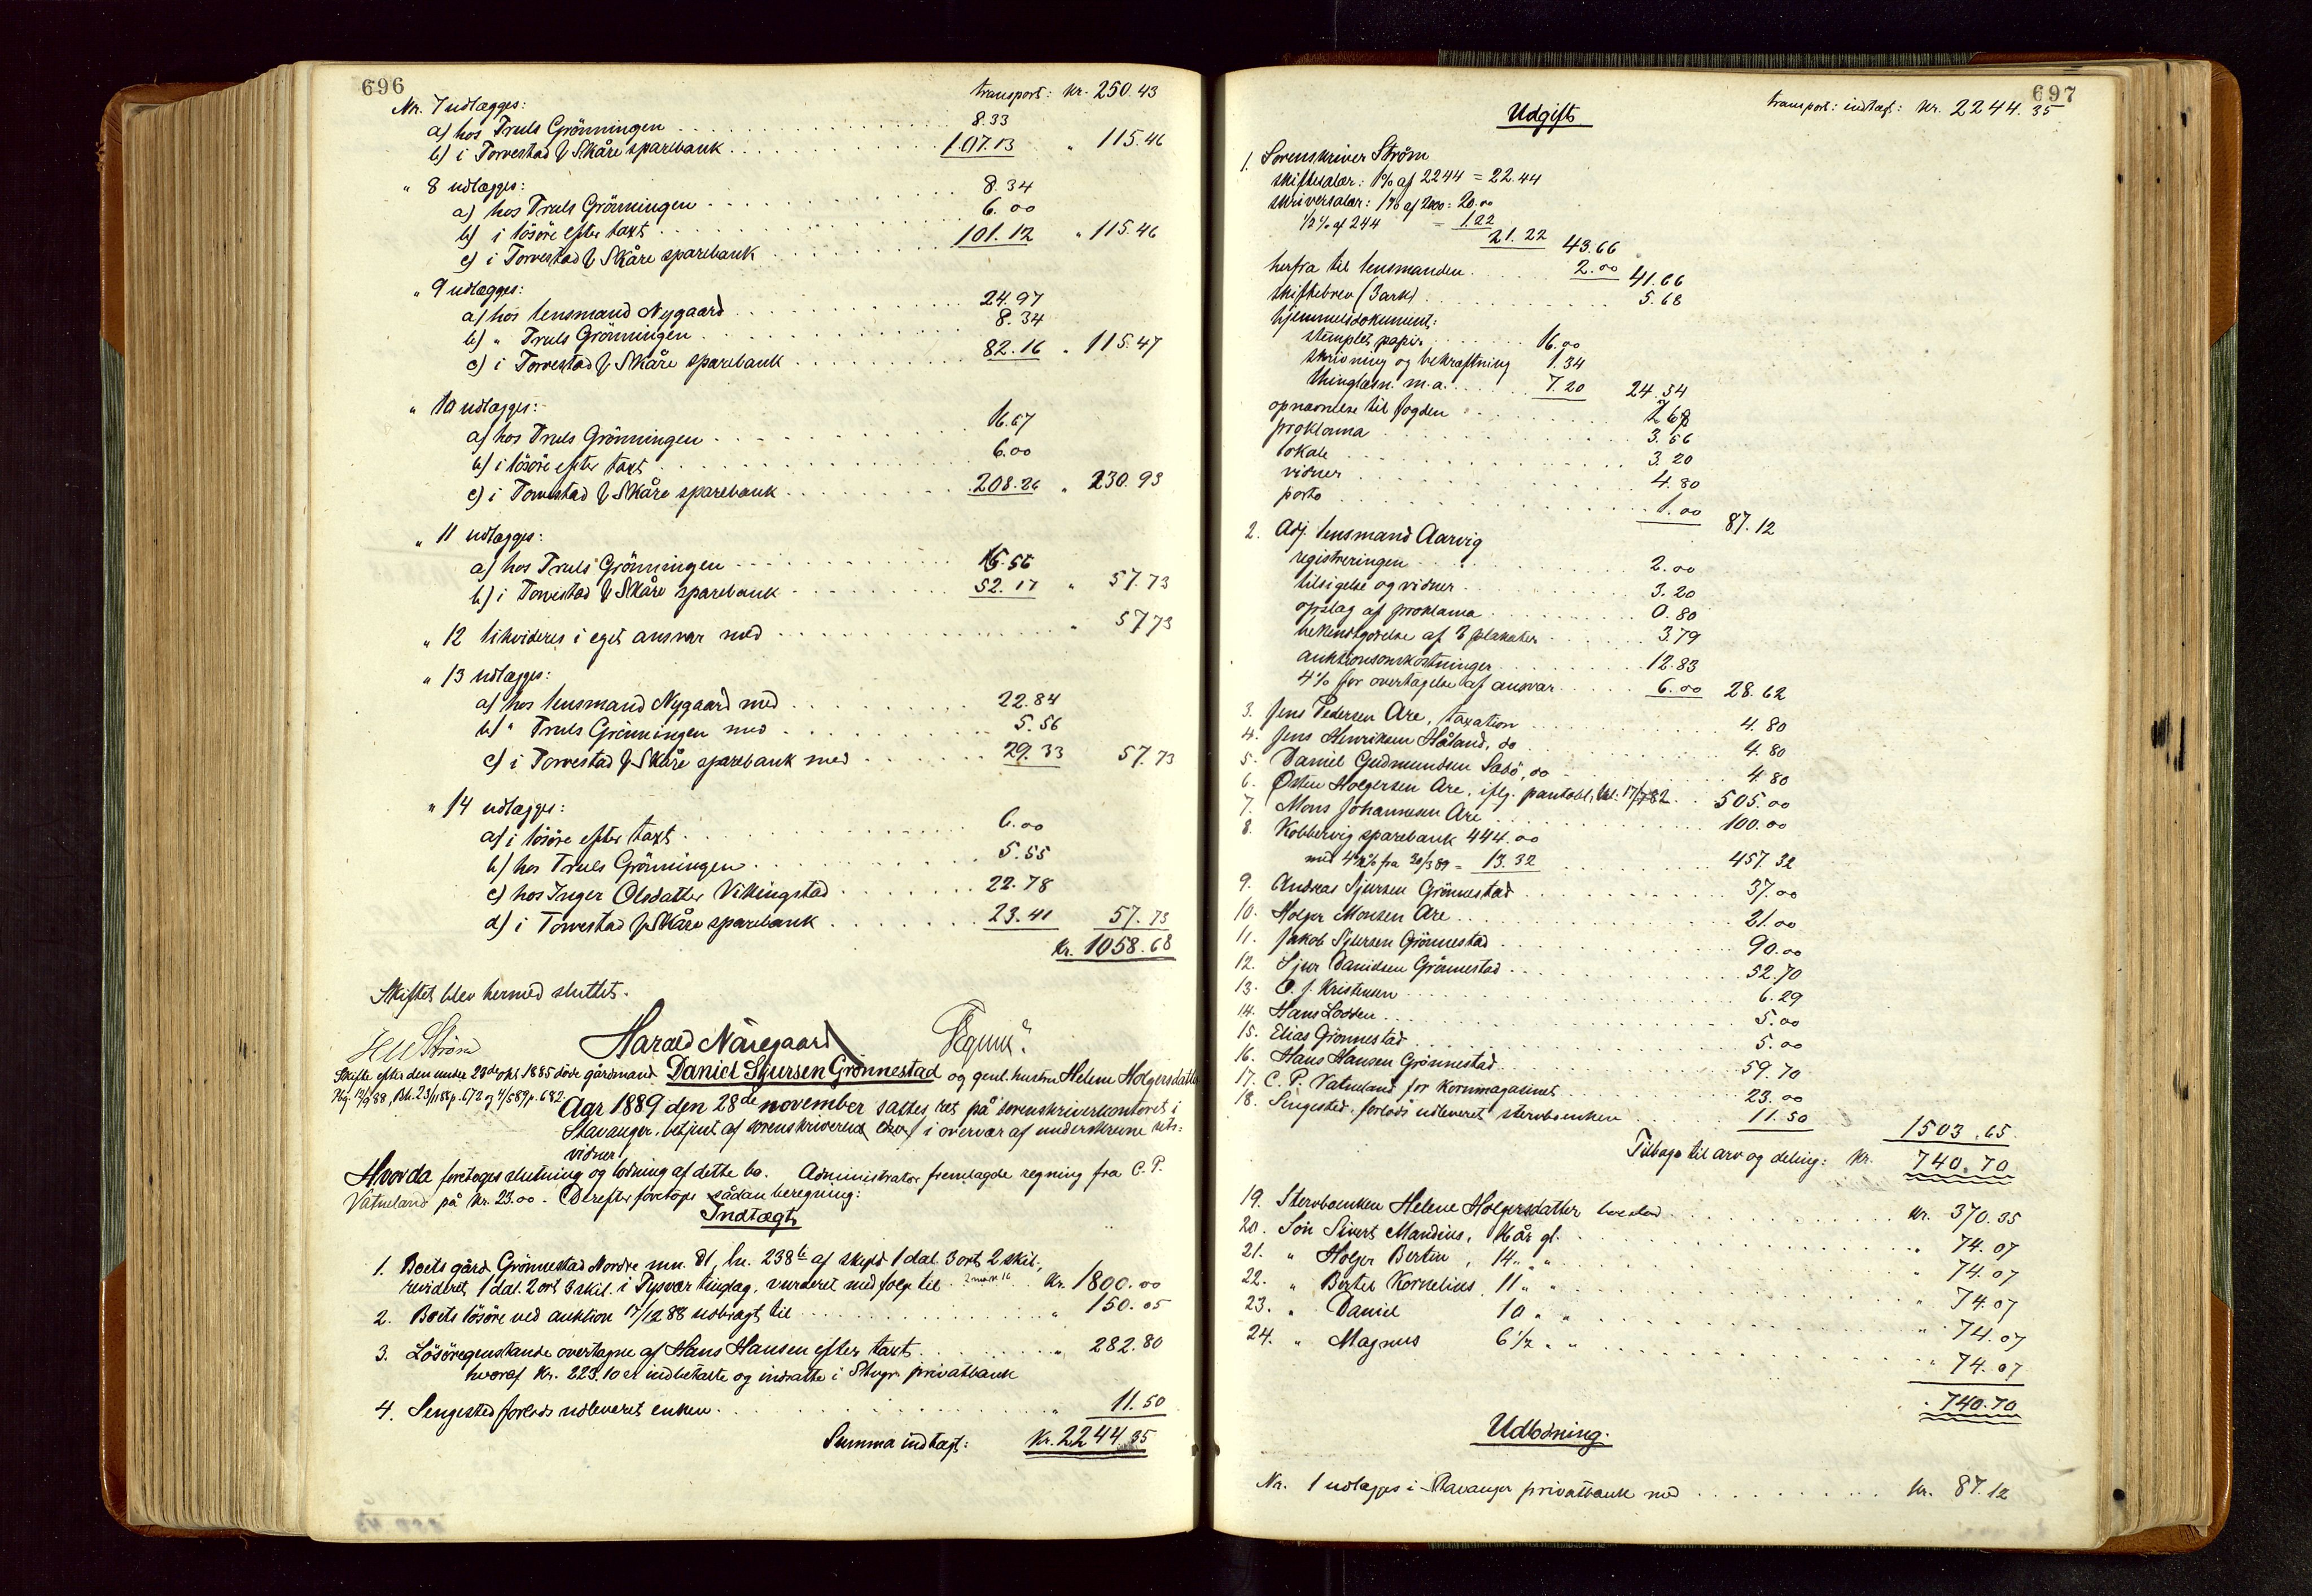 696
transport: kr. 250.43
Nr. 7 udlægges:
a) hos Truls Grönningen 8.33
b) i Torvestad & Skåre sparebank 107.13 " 115.46
" 8 udlægges:
a) hos Truls Grönningen 8.34
b) i lösöre efter taxt 6.00
c) i Torvestad & Skåre sparebank 101.12 " 115.46
" 9 udlægges:
a) hos lensmand Nygaard 24.97
b) " Truls Grönningen 8.34
c) i Torvestad & Skåre sparebank 82.16 " 115.47
" 10 udlægges:
a) hos Truls Grönningen 16.67
b) i lösöre efter taxt 6.00
c) i Torvestad & Skåre sparebank 208.26 " 230.93
" 11 udlægges:
a) hos Truls Grönningen 5.56
b) i Torvestad & Skåre sparebank 52.17 " 57.73
" 12 likvideres i eget ansvar med " 57.73
" 13 udlægges:
a) hos lensmand Nygaard med 22.84
b) " Truls Grönningen med 5.56
c) i Torvestad & Skåre sparebank med 29.33 57.73
" 14 udlægges:
a) i lösöre efter taxt 6.00
b) hos Truls Grönningen 5.55
c) hos Inger Olsdatter Vikingstad 22.78
d) i Torvestad & Skåre sparebank 23.41 57.73
kr. 1058.68
Skiftet blev hermed sluttet.
Ström Harald Nörregaard
Skifte efter den under 28de okt. 1885 døde gårdmand Daniel Sjursen Grønnestad og genl. hustru Helene Holgersdatter
Aar 1889 den 28de november sattes ret på sorenskriverkontoret i
Stavanger, betjent af sorenskriveren i overvær af underskrevne rets-
vidner
Hvorda foretoges slutning og lodning af dette bo. Administrator fremlagde regning fra C. P.
Vatneland på kr. 23.00. Derefter foretoges sådan beregning:
Indtægt
1. Boets gård Grönnestad Nordre mn. 81, ln. 238b af skyld 1 dal. 3 ort 2 skil.,
revideret 1 dal. 2 ort 3 skil. i Tysvær tinglag, vurderet med følge til kr. 1800.00
2. Boets lösöre ved auktion 17/12 88 udbragt til " 150.05
3. Lösöregenstande overtagne af Hans Hansen efter taxt " 282.80
hvoraf kr. 223.10 er indbetalte og indsatte i Stvgr. privatbank
4. Sengested forlods udleveret enken " 11.50
Summa indtægt: kr. 2244.35
697
transport: indtægt: kr. 2244.35
Udgift
1. Sorenskriver Ström
skiftesalær: 1% af 2244 = 22.44
skriversalær: 1% af 2000 = 20.00
1/2% af 244 = 1.22
21.22 43.66
herfra til lensmanden 2.00 41.66
skiftebrev (3 ark) 5.68
hjemmelsdokument:
stemplet papir 16.00
skrivning og bekræftning 1.34
thinglæsn. m.a. 7.20 24.54
opnævnelse til fogden 2.68
proklama 3.56
lokale 3.20
vidner 4.80
porto 1.00 87.12
2. Adj. lensmand Aarvig
registreringen 2.00
tilsigelse og vidner 3.20
opslag af proklama 0.80
bekendtgørelse af 3 plakater 3.79
auktionsomkostninger 12.83
4% for overtagelse af ansvar 6.00 28.62
3. Jens Pedersen Are, taxation 4.80
4. Jens Henriksen Håland, do 4.80
5. Daniel Gudmundsen Sæbö, do 4.80
6. Østen Holgersen Are, iflg. pantobl. 505.00
7. Mons Johannesen Are 100.00
8. Kobbervig sparebank 444.00
med 4 1/2% fra 30/3 89 = 13.32 457.32
9. Andreas Sjursen Grönnestad 37.00
10. Holger Monsen Are 21.00
11. Jakob Sjursen Grönnestad 90.00
12. Sjur Danielsen Grönnestad 52.70
13. O. J. Kristensen 6.29
14. Hans Lodden 5.00
15. Elias Grönnestad 5.00
16. Hans Hansen Grönnestad 59.70
17. C. P. Vatneland for Kornmagasinet 23.00
18. Sengested forlods udleveret stervboenken 11.50 1503.65
Tilbage til arv og deling: kr. 740.70
19. Stervboenken Helene Holgersdatter boeslod kr. 370.35
20. Sön Sivert Mandius, 16 år gl. " 74.07
21. " Holger Bertin, 14 " " " 74.07
22. " Bertel Kornelius, 11 " " " 74.07
23. " Daniel 10 " " " 74.07
24. " Magnus 6 1/2 " " " 74.07
740.70
Udlodning.
Nr. 1 udlægges i Stavanger privatbank med kr. 87.12